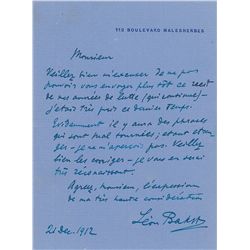 112 BOULEVARD MALESHERBES
Monsieur
Veillez bien m'excuser Je ne pas
pouvois vous envoyer plus tôt ce recit
de mes années de lutte (qui continue) —
j'etais très pris ce dernier temps.
Evidemment il y a des phrases
qui sont mal tournées; etant etran-
ger — je ne m'aperçois pas. Veillez
bien les corriger — je vous en serai
très reconnaissant.
Agreez, monsieur, l'expression
de ma très haute consideration
Léon Bakst
21 Dec. 1912